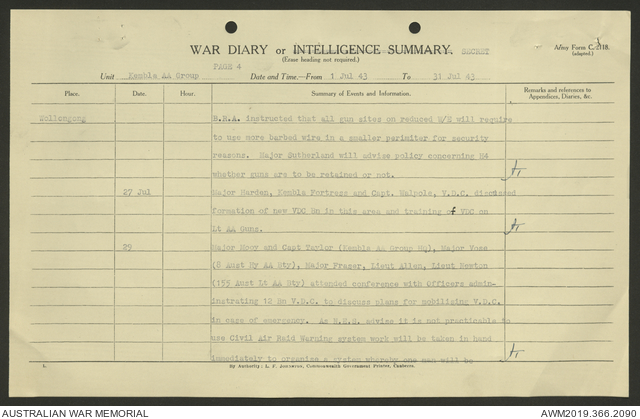 WAR DIARY or INTELLIGENCE SUMMARY. SECRET
(Erase heading not required.)
Army Form C.2118.
(adapted.)
PAGE 4
Unit Kembla AA Group Date and Time.—From 1 Jul 43 To 31 Jul 43
Place. Date. Hour. Summary of Events and Information. Remarks and references to Appendices, Diaries, &c.
Wollongong B.R.A. instructed that all gun sites on reduced W/E will require
to use more barbed wire in a smaller perimiter for security
reasons. Major Sutherland will advise policy concerning H4
whether guns are to be retained or not.
27 Jul Major Harden, Kembla Fortress and Capt. Walpole, V.D.C. discussed
formation of new VDC Bn in this area and training of VDC on
Lt AA Guns.
29 Major Hoey and Capt Taylor (Kembla AA Group HQ), Major Vose
(8 Aust Hy AA Bty), Major Fraser, Lieut Allen, Lieut Newton
(155 Aust Lt AA Bty) attended conference with Officers admin-
instrating 12 Bn V.D.C. to discuss plans for mobilizing V.D.C.
in case of emergency. As N.E.S. advise it is not practicable to
use Civil Air Raid Warning system work will be taken in hand
immediately to organise a system whereby one man will be
1.
By Authority: L. F. Johnston, Commonwealth Government Printer, Canberra.
AUSTRALIAN WAR MEMORIAL
AWM2019.366.2090